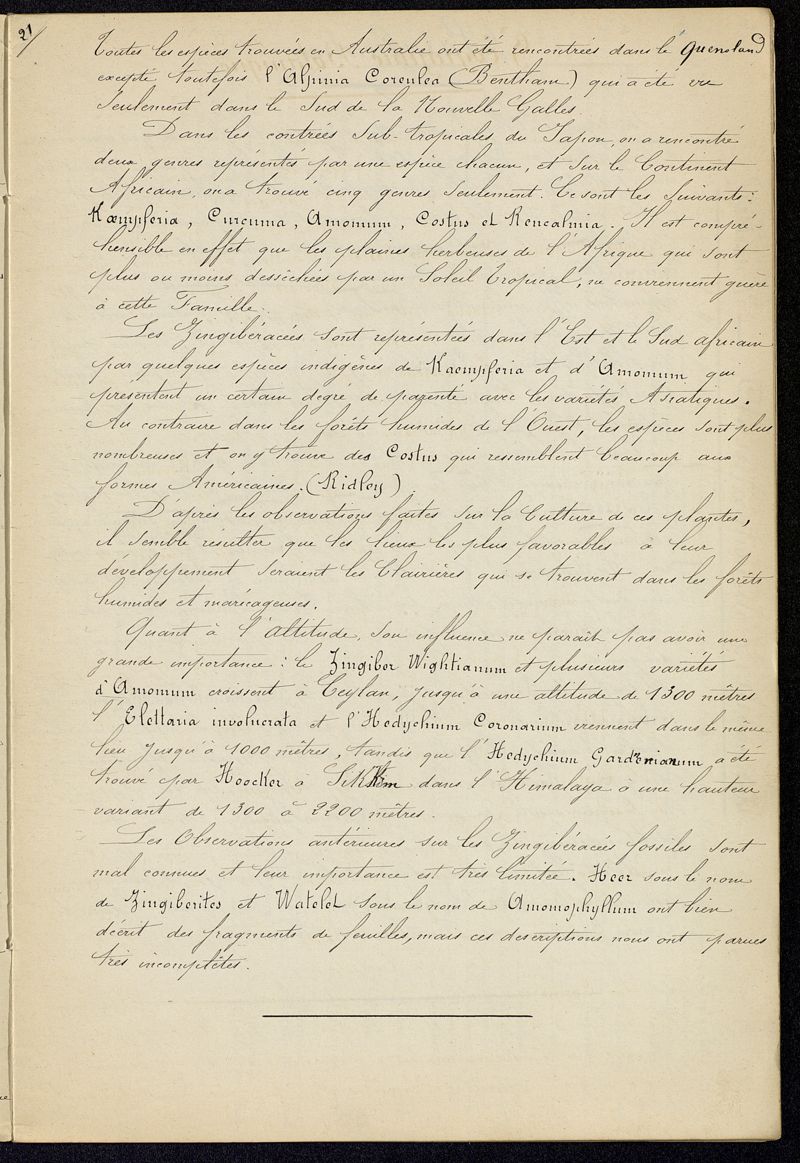 21/
Toutes les espèces trouvées en Australie ont été rencontrées dans le Quensland
excepté toutefois l'Alpinia Coreulea (Bentham) qui a été vu
seulement dans le Sud de la Nouvelle Galles.
Dans les contrées Sub-tropicales du Japon, on a rencontré
deux genres représentés par une espèce chacun, et sur le Continent
Africain, on a trouvé cinq genres seulement. Ce sont les suivants:
Kæmpferia, Curcuma, Amomum, Costus et Rencalmia. Il est compré-
hensible en effet que les plaines herbeuses de l'Afrique qui sont
plus ou moins desséchées par un Soleil tropical, ne conviennent guère
à cette Famille.
Les Zingibéracées sont représentées dans l'Est et le Sud africain
par quelques espèces indigènes de Kaempferia et d'Amomum qui
présentent un certain degré de parenté avec les variétés Asiatiques.
Au contraire dans les forêts humides de l'Ouest, les espèces sont plus
nombreuses et on y trouve des Costus qui ressemblent beaucoup aux
formes Américaines. (Ridley)
D'après les observations faites sur la Culture de ces plantes,
il semble résulter que les lieux les plus favorables à leur
développement seraient les Clairières qui se trouvent dans les forêts
humides et marécageuses.
Quant à l'altitude, son influence ne paraît pas avoir une
grande importance: le Zingiber Wightianum et plusieurs variétés
d'Amomum croissent à Ceylan, jusqu'à une altitude de 1300 mètres
l'Elettaria involucrata et l'Hedychium Coronarium viennent dans le même
lieu jusqu'à 1000 mètres, tandis que l'Hedychium Gardnerianum a été
trouvé par Hoocker à Sikkim dans l'Himalaya à une hauteur
variant de 1300 à 2200 mètres.
Les Observations antérieures sur les Zingibéracées fossiles sont
mal connues et leur importance est très limitée. Heer sous le nom
de Zingiberites et Watelet sous le nom de Amomophyllum ont bien
décrit des fragments de feuilles, mais ces descriptions nous ont parues
très incomplètes.